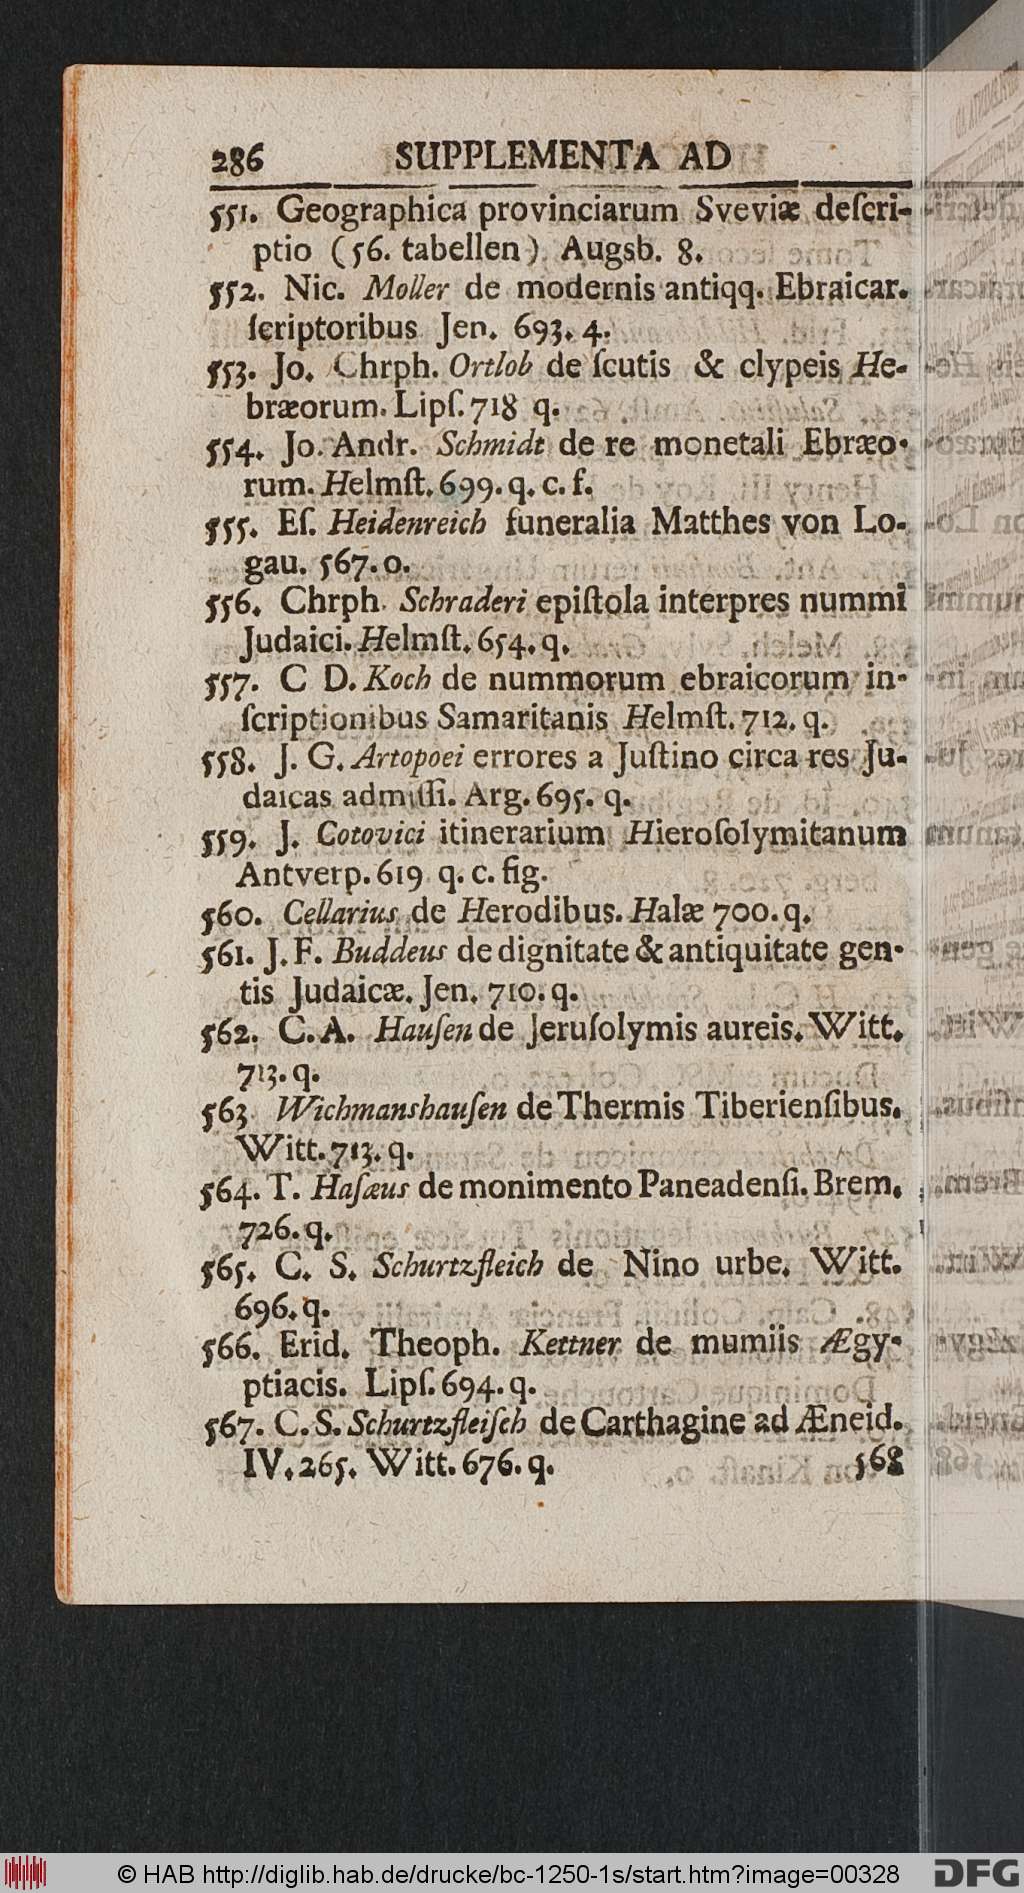 286 SUPPLEMENTA AD
551. Geographica provinciarum Sveviæ deſcri-
ptio (56. tabellen) Augsb. 8.
552. Nic. Moller de modernis antiqq. Ebraicar.
ſcriptoribus Jen. 693. 4.
553. Jo. Chrph. Ortlob de ſcutis & clypeis He-
bræorum. Lipſ. 718 q.
554. Jo. Andr. Schmidt de re monetali Ebræo-
rum. Helmſt. 699. q. c. f.
555. Eſ. Heidenreich funeralia Matthes von Lo-
gau. 567. o.
556. Chrph. Schraderi epiſtola interpres nummi
Judaici. Helmſt. 654. q.
557. C D. Koch de nummorum ebraicorum in-
ſcriptionibus Samaritanis Helmſt. 712. q.
558. J. G. Artopoei errores a Juſtino circa res Ju-
daicas admiſſi. Arg. 695. q.
559. J. Cotovici itinerarium Hieroſolymitanum
Antverp. 619 q. c. fig.
560. Cellarius de Herodibus. Halæ 700. q.
561. J. F. Buddeus de dignitate & antiquitate gen-
tis Judaicæ. Jen. 710. q.
562. C. A. Hauſen de Jeruſolymis aureis. Witt.
713. q.
563 Wichmanshauſen de Thermis Tiberienſibus.
Witt. 713. q.
564. T. Haſæus de monimento Paneadenſi. Brem.
726. q.
565. C. S. Schurtzfleich de Nino urbe. Witt.
696. q.
566. Erid. Theoph. Kettner de mumiis Ægy-
ptiacis. Lipſ. 694. q.
567. C. S. Schurtzfleiſch de Carthagine ad Æneid.
IV. 265. Witt. 676. q. 568
© HAB http://diglib.hab.de/drucke/bc-1250-1s/start.htm?image=00328 DFG